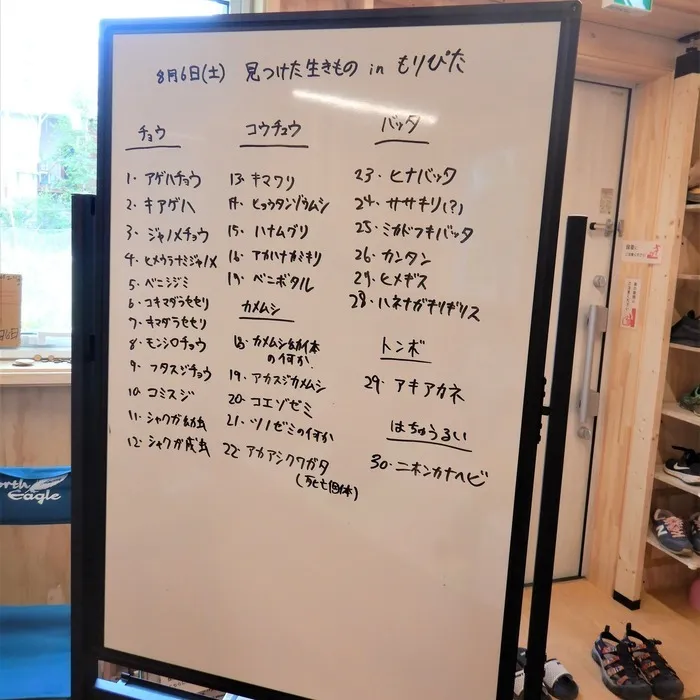 8月6日(土) 見つけた生きもの in もりぴた
チョウ
1. アゲハチョウ
2. キアゲハ
3. ジャノメチョウ
4. ヒメウラナミジャノメ
5. ベニシジミ
6. コキマダラセセリ
7. キマダラセセリ
8. モンシロチョウ
9. フタスジチョウ
10. コミスジ
11. シャクガ幼虫
12. シャクガ成虫
コウチュウ
13. キマワリ
14. ヒョウタンゾウムシ
15. ハナムグリ
16. アカハナカミキリ
17. ベニボタル
カメムシ
18. カメムシ幼体
の何か
19. アカスジカメムシ
20. コエゾゼミ
21. ツノゼミの何か
22. アカアシクワガタ
(死亡個体)
バッタ
23. ヒナバッタ
24. ササキリ(?)
25. ミカドフキバッタ
26. カンタン
27. ヒメギス
28. ハネナガキリギリス
トンボ
29. アキアカネ
はちゅうるい
30. ニホンカナヘビ
North
Eagle